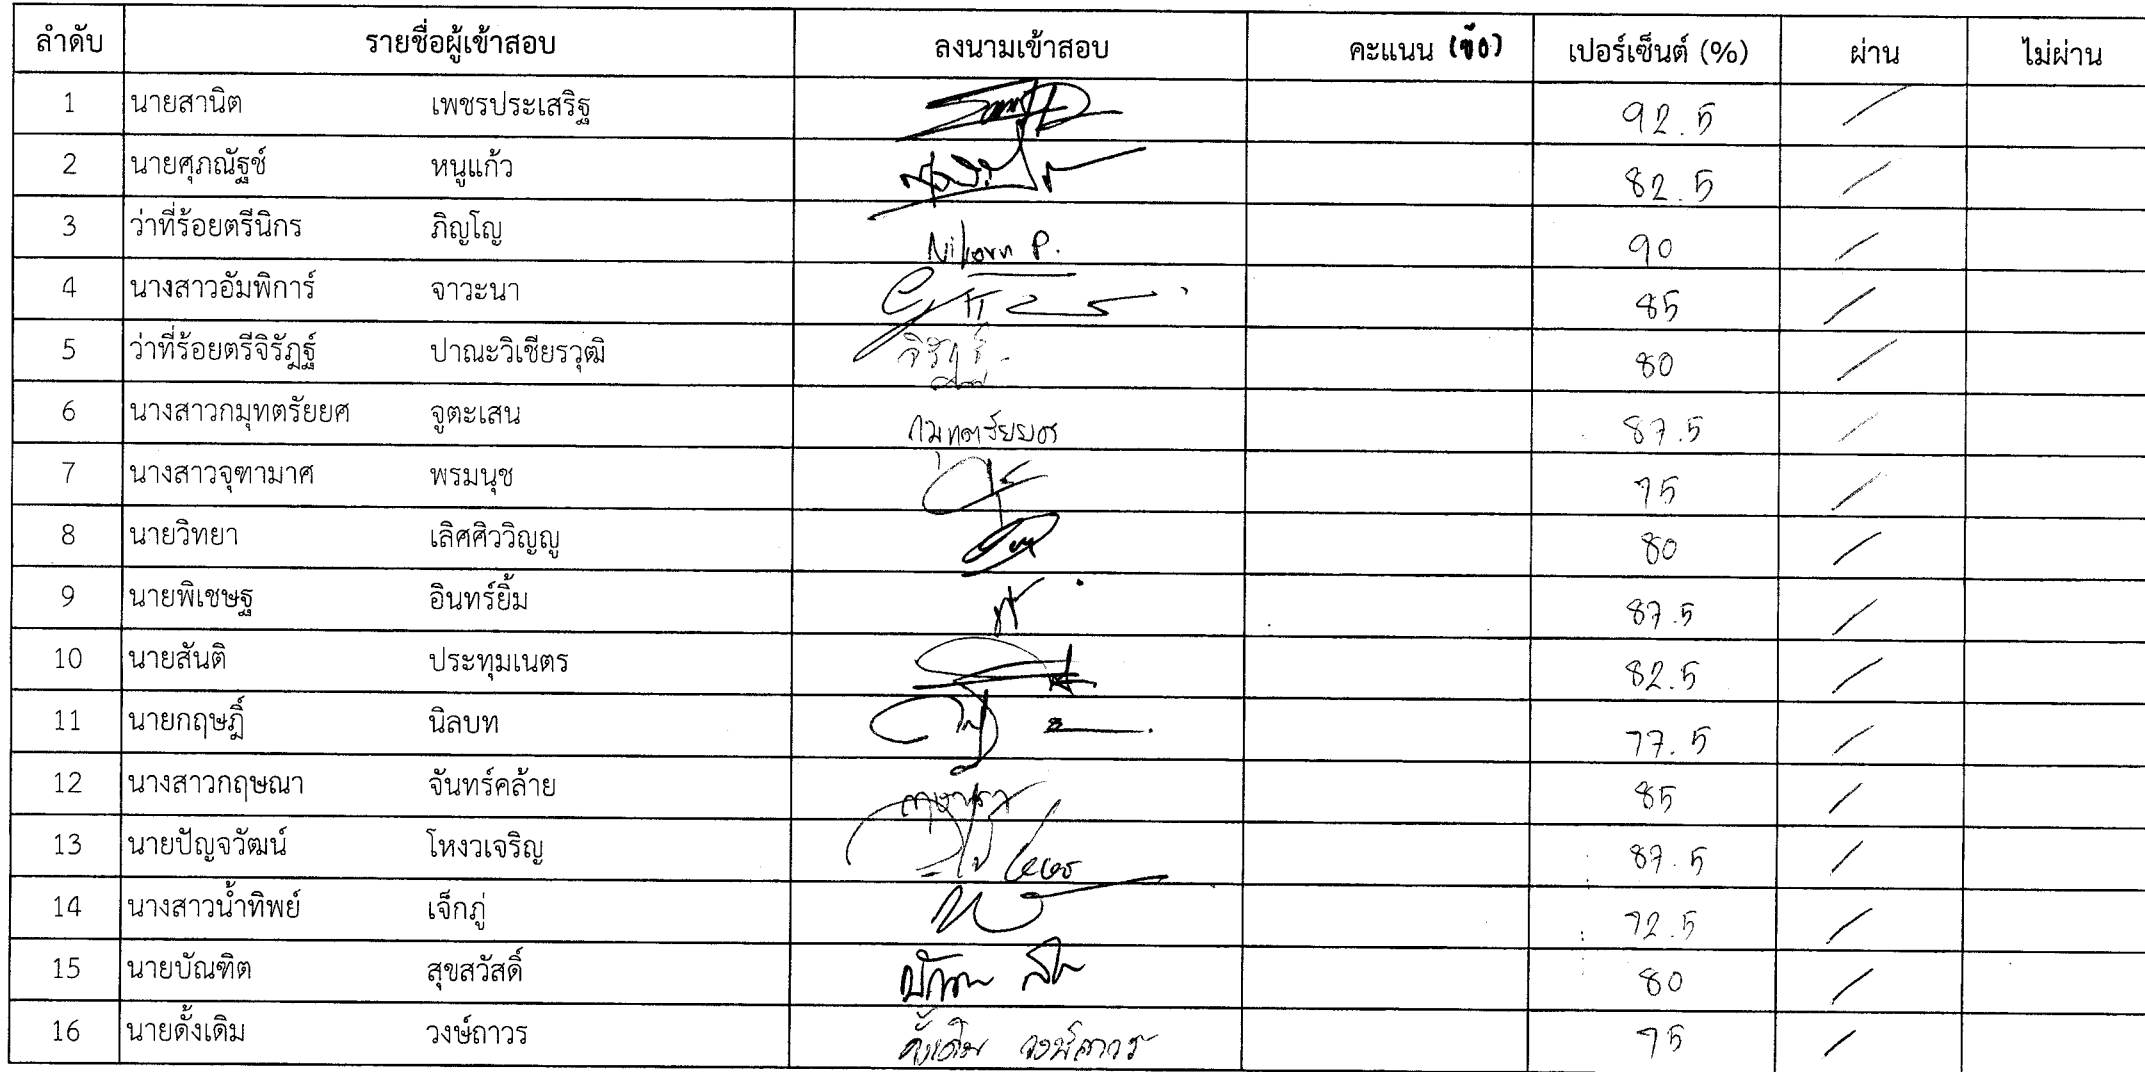 ลำดับ รายชื่อผู้เข้าสอบ ลงนามเข้าสอบ คะแนน (ข้อ) เปอร์เซ็นต์ (%) ผ่าน ไม่ผ่าน
1 นายสานิต เพชรประเสริฐ 92.5 /
2 นายศุภณัฐช์ หนูแก้ว 82.5 /
3 ว่าที่ร้อยตรีนิกร ภิญโญ Nikorn P. 90 /
4 นางสาวอัมพิการ์ จาวะนา 85 /
5 ว่าที่ร้อยตรีจิรัฏฐ์ ปาณะวิเชียรวุฒิ จิรัฏฐ์ 80 /
6 นางสาวกมุทตรัยยศ จูตะเสน กมุทตรัยยศ 87.5 /
7 นางสาวจุฑามาศ พรมนุช 75 /
8 นายวิทยา เลิศศิววิญญู 80 /
9 นายพิเชษฐ อินทร์ยิ้ม 87.5 /
10 นายสันติ ประทุมเนตร 82.5 /
11 นายกฤษฎิ์ นิลบท 77.5 /
12 นางสาวกฤษณา จันทร์คล้าย กฤษณา 85 /
13 นายปัญจวัฒน์ โหงวเจริญ 87.5 /
14 นางสาวน้ำทิพย์ เจ็กภู่ 72.5 /
15 นายบัณฑิต สุขสวัสดิ์ 80 /
16 นายดั้งเดิม วงษ์ถาวร ดั้งเดิม วงษ์ถาวร 75 /